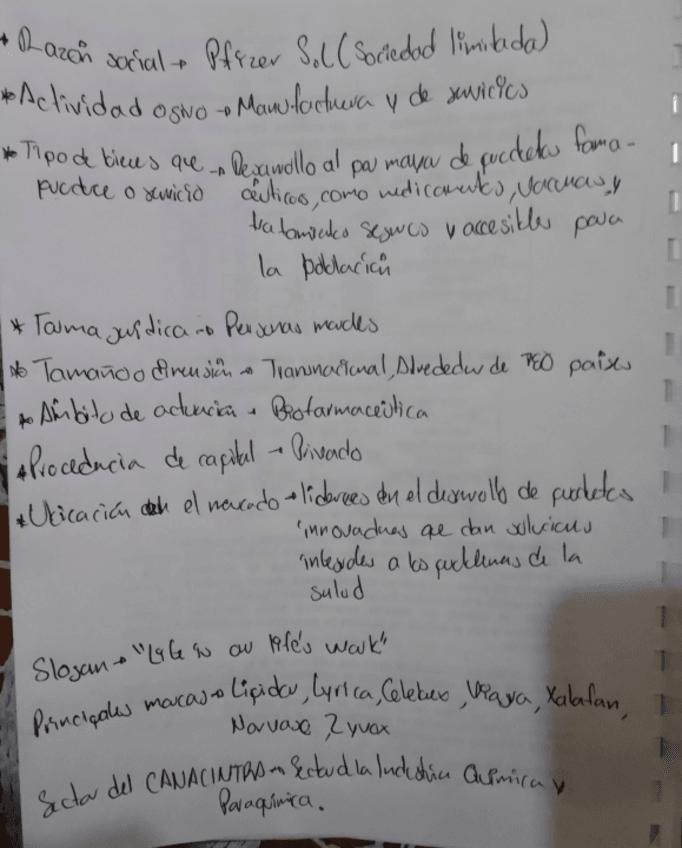 * Razón social → Pfizer S.L (Sociedad limitada)
* Actividad o giro → Manufacturera y de servicios
* Tipo de bienes que → Desarrollo al por mayor de productos farma-
produce o servicio céuticos, como medicamentos, vacunas, y
tratamientos seguros y accesibles para
la población
* Forma jurídica → Personas morales
* Tamaño o dimensión → Transnacional, Alrededor de países
* Ámbito de actuación → Biofarmacéutica
* Procedencia de capital → Privado
* Ubicación en el mercado → líderes en el desarrollo de productos
innovadores que dan soluciones
integrales a los problemas de la
salud
Slogan → "Life is our life's work"
Principales marcas → Lipitor, Lyrica, Celebrex, Viagra, Xalatan,
Norvasc, Zyvox
Sector del CANACINTRA → Sector de la Industria Química y
Paraquímica.